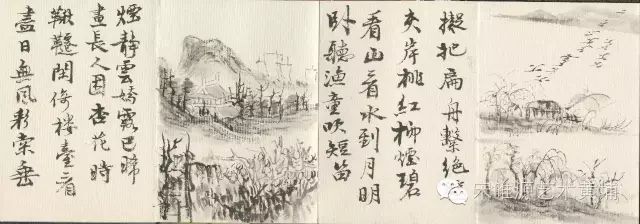 擬把扁舟繫絕
夾岸桃紅柳煙碧
看山看水到月明
卧聽漁童吹短笛
煙靜雲嬌露已晞
晝長人困杏花時
鞦韆閒倚樓臺看
盡日無風彩索垂